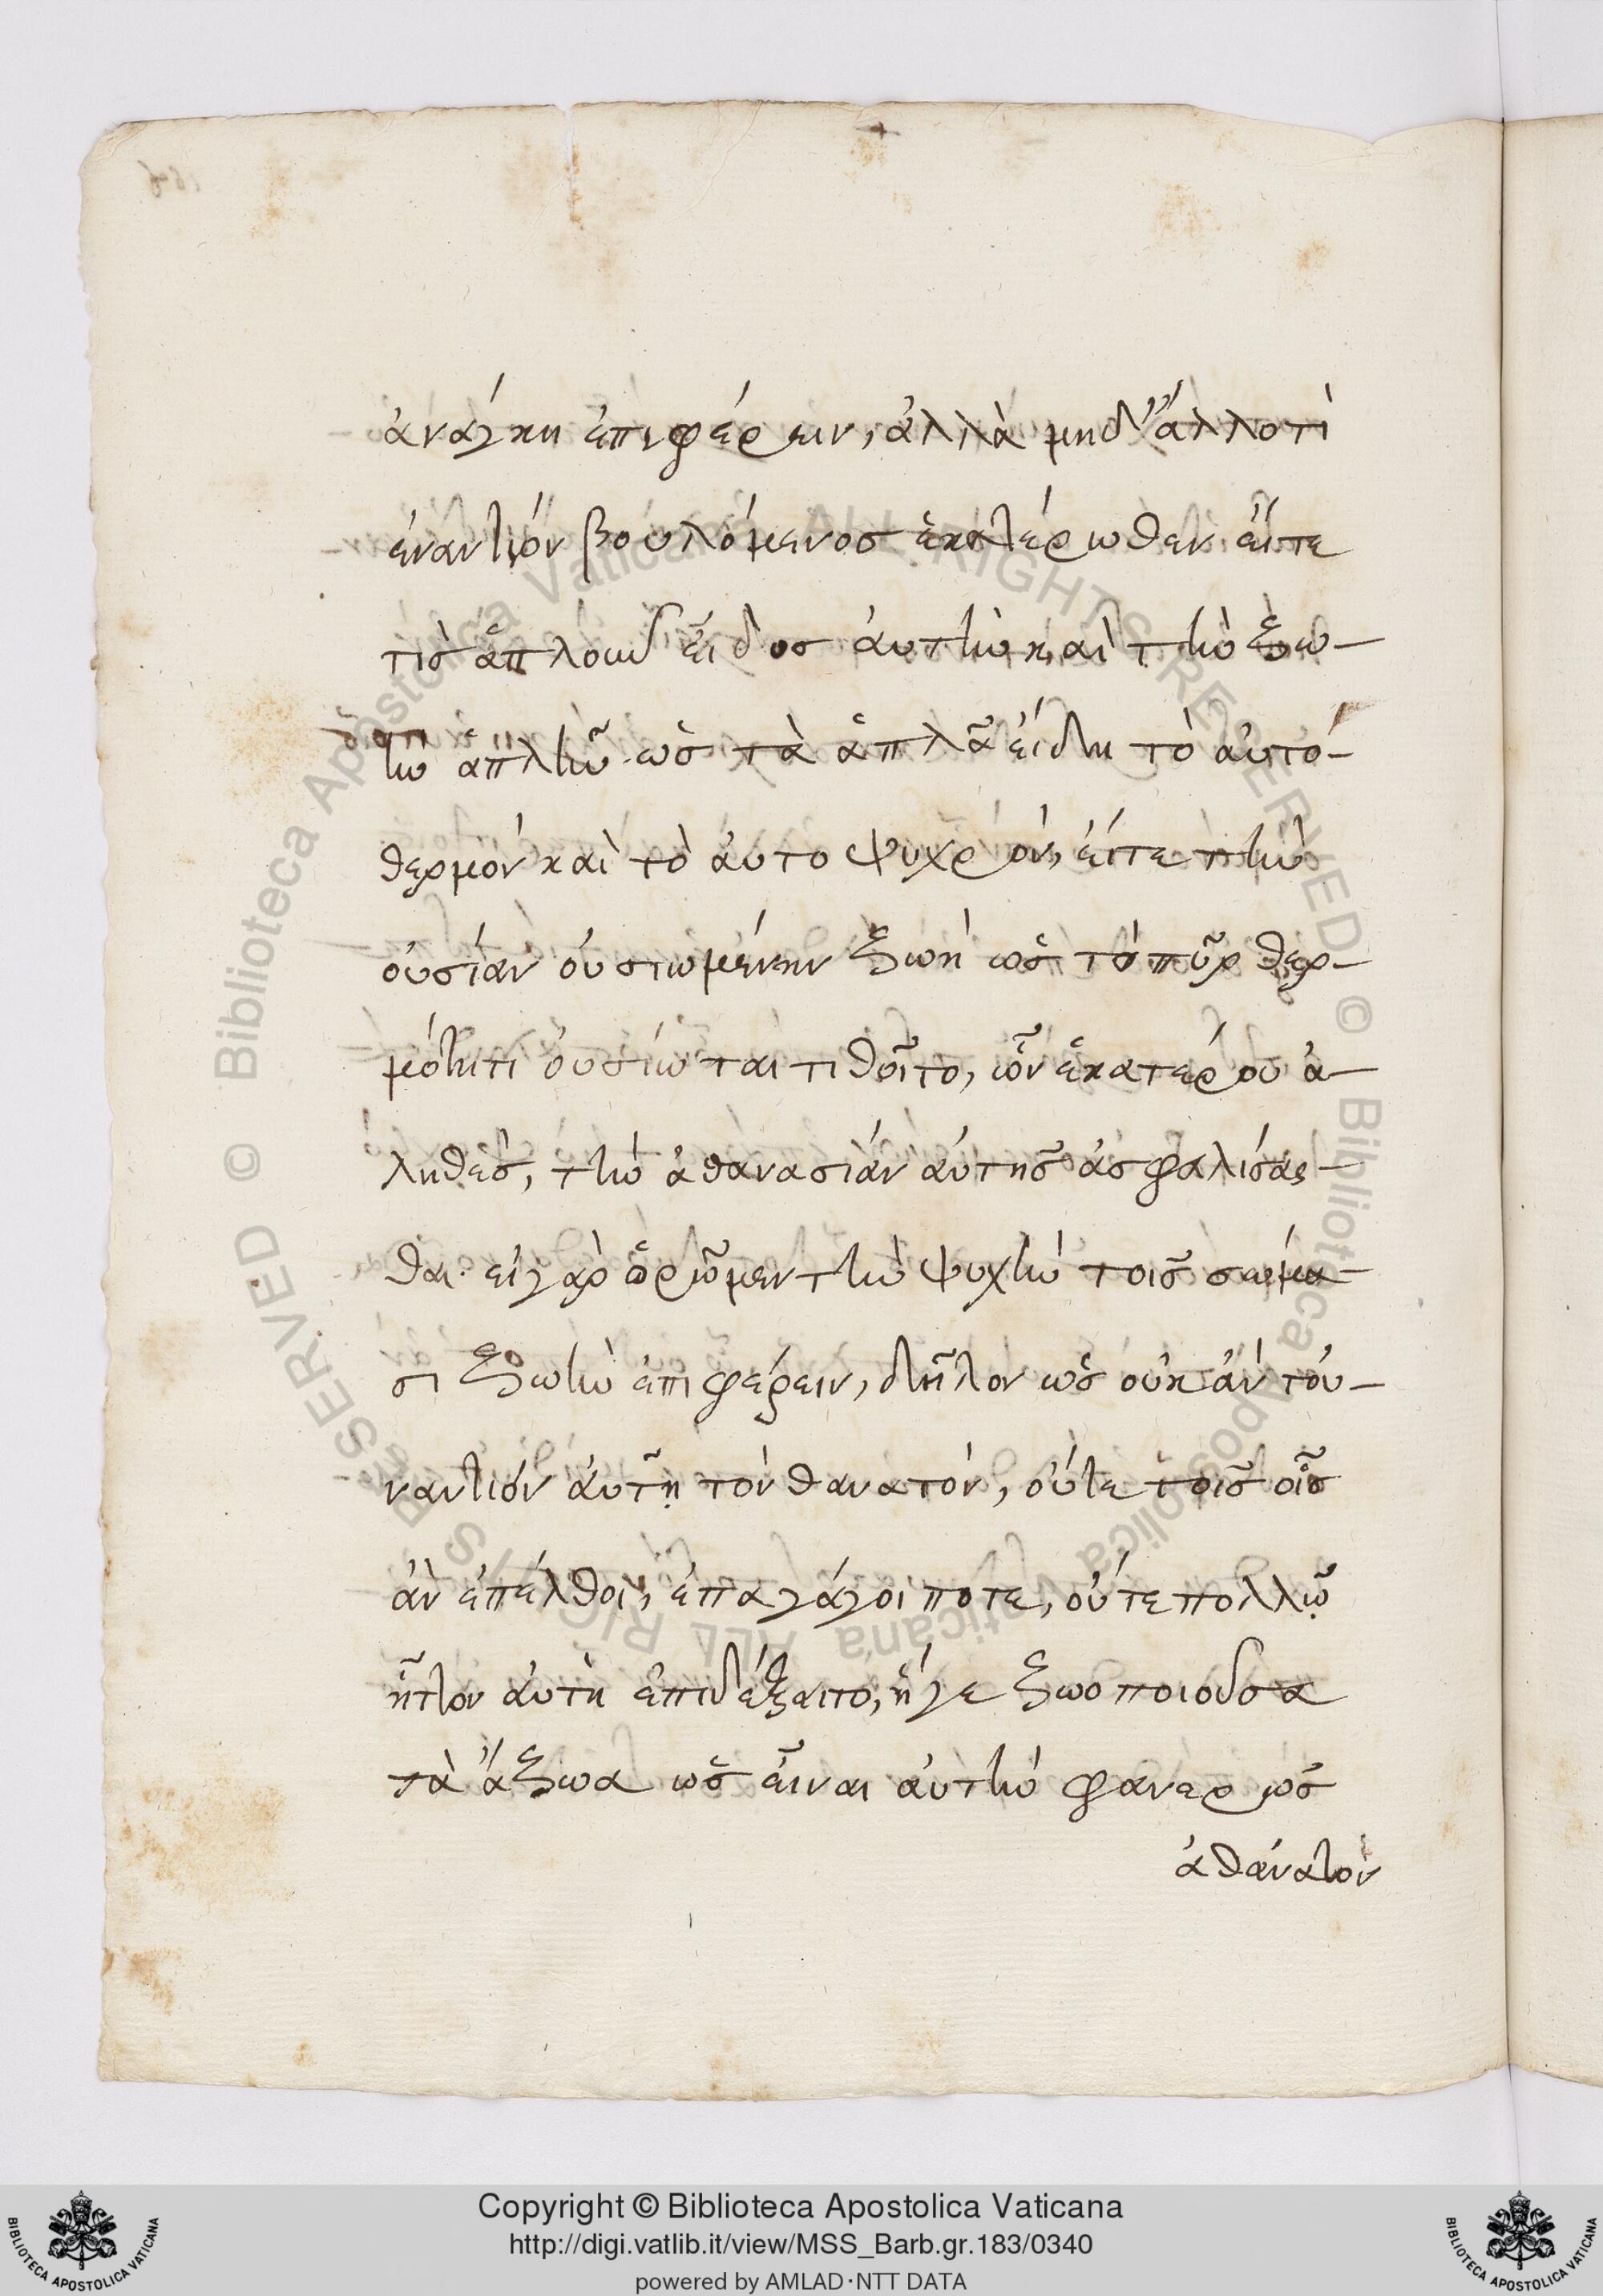 ἀνάγκη ἐπιφέρειν, ἀλλὰ μηδ' ἄλλοτὶ
ἐναντίον βουλόμενοσ ἑκατέρωθεν εἴτε
τὶσ ἁπλοῦν εἶδοσ ἀυτὴν καὶ τὴν ζω–
ὴν ἁπλῆν ὡσ τὰ ἁπλᾶ εἴδη τὸ αὐτό–
θερμόν καὶ τὸ ἀυτο ψυχρόν, εἴτε τὴν
ὀυσίαν ὀυσιωμένην ζωῆ ὡσ τὸ πῦρ θερ–
μότητι ὀυσίωται τιθοῖτο, ὧν ἑκατέρου ἀ–
ληθέσ, τὴν ἀθανασίαν ἀυτησ ἀσφαλίσασ–
θαι· εἰ γὰρ ὁρῶμεν τὴν ψυχὴν τοισ σώμα–
σι ζωὴν ἐπιφέρειν, δῆλον ὡσ οὐκ ἀν τὀυ–
ναντιόν ἀυτῇ τὸν θανατόν, ὀύτε τοῖσ οἷσ
ἀν ἐπέλθοι, ἐπαγάγοι ποτε, οὔτε πολλῷ
ἧττον ἀυτὴ ἐπιδέξαιτο, ἥγε ζωοποιοῦσα
τὰ ἄζωα ὡσ εἶναι ἀυτὴν φανερὼσ
ἀθάνατον
Copyright © Biblioteca Apostolica Vaticana
http://digi.vatlib.it/view/MSS_Barb.gr.183/0340
powered by AMLAD·NTT DATA
BIBLIOTECA APOSTOLICA VATICANA
BIBLIOTECA APOSTOLICA VATICANA
© Biblioteca Apostolica Vaticana ALL RIGHTS RESERVED © Biblioteca Apostolica Vaticana ALL RIGHTS RESERVED